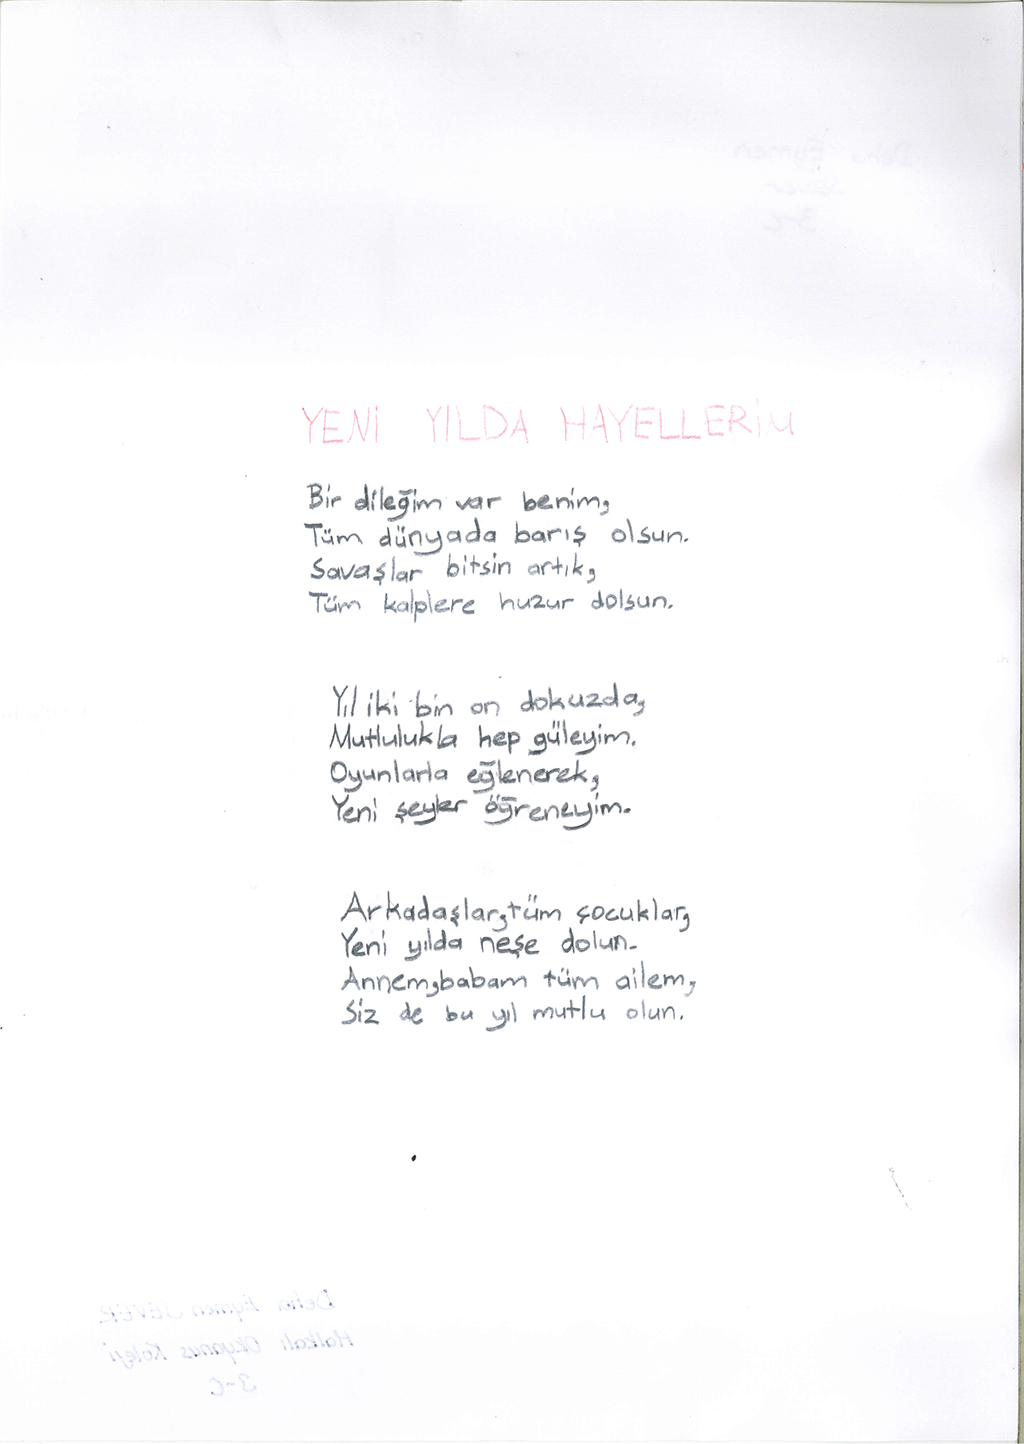 Deha Eymen
Sever
3-C
YENİ YILDA HAYELLERİM
Bir dileğim var benim,
Tüm dünyada barış olsun.
Savaşlar bitsin artık,
Tüm kalplere huzur dolsun.
Yıl iki bin on dokuzda,
Mutlulukla hep güleyim.
Oyunlarla eğlenerek,
Yeni şeyler öğreneyim.
Arkadaşlar,tüm çocuklar,
Yeni yılda neşe dolun.
Annem,babam tüm ailem,
Siz de bu yıl mutlu olun.
Deha Eymen SEVER
Halkalı Okyanus Koleji
3-C